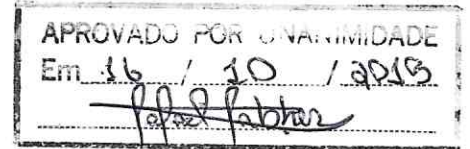 APROVADO POR UNANIMIDADE
Em 16 / 10 / 2019